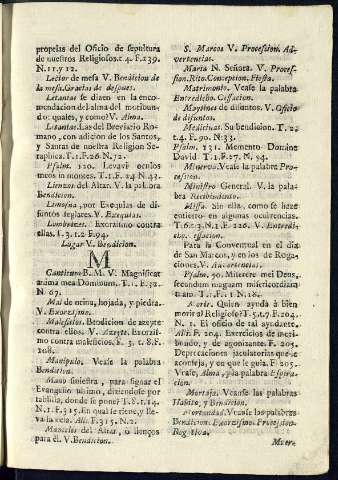 propelas del Oficio de sepultura
de nuestros Religiosos. t. 4. F. 239.
N. 11. y 12.
Lector de mesa V. Bendicion de
la mesa. Gracias de despues.
Letanias se dizen en la enco-
mendacion del alma del moribun-
do: quales, y como? V. Alma.
Letanias. Las del Breviario Ro-
mano, con adicion de los Santos,
y Santas de nuestra Religion Se-
raphica. T. 1. F. 28. N. 72.
Psalm. 120. Levavi oculos
meos in montes. T. 1. F. 24 N. 43.
Lienzos del Altar. V. la palabra
Bendicion.
Limosna, por Exequias de di-
funtos seglares. V. Exequias.
Lombrizes. Exorcismo contra
ellas. t. 3. F. 94.
Lugar V. Bendicion.
M
Canticum B. M. V. Magnificat
anima mea Dominum. T. 1. F. 32.
N. 67.
Mal de orina, hojada, y piedra.
V. Exorcismo.
Maleficios. Bendicion de azeyte
contra ellos. V. Azeyte. Exorcis-
mo contra maleficios. F. 3. t. 8. F.
208.
Manipulo. Vease la palabra
Bendicion.
Mano siniestra, para signar el
Evangelio ultimo, diziendose por
tablilla, donde se pone? T. 8. t. 14.
N. 1. F. 315. En qual se tiene, y lle-
va la vela. Alli F. 315. N. 2.
Manteles del Altar, o lienços
para él. V. Bendicion.
S. Marcos V. Procession. Ad-
vertencias.
Maria N. Señora. V. Proces-
sion. Rito. Conception. Fiesta.
Matrimonio. Vease la palabra
Entredicho. Cessacion.
Maytines de difuntos. V. Oficio
de difuntos.
Medicinas. Su bendicion. T. 2.
t. 4. F. 90. N. 33.
Psalm. 131. Memento Domine
David T. 1. F. 27. N. 54.
Mineros. Vease la palabra Pro-
cession.
Ministro General. V. la pala-
bra Recibimiento.
Missa. Sin ella, como se haze
entierro en algunas ocurrencias.
T. 6. t. 3. N. 1 F. 226. V. Entredi-
cho. Cessacion.
Para la Conventual en el dia
de San Marcos, y en los de Roga-
ciones. V. Advertencias.
Psalm. 50. Miserere mei Deus,
secundum magnam misericordiam
tuam. T. 1. F. 1 N. 18.
Morir. Quien ayuda à bien
morir al Religioso? T. 5. t. 7. F. 204.
N. 1. El oficio de tal ayudante.
Alli F. 204. Exercicios de mori-
bundo, y de agonizante. F. 205.
Deprecaciones jaculatorias que le
aconseja, y en que le guia. F. 205.
Vease, Alma, y la palabra Espira-
cion.
Mortaja. Veanse las palabras
Habito, y Bendicion.
Mortandad. Veanse las palabras
Bendicion. Exorcismo. Procession.
Rogativa.
Muer-